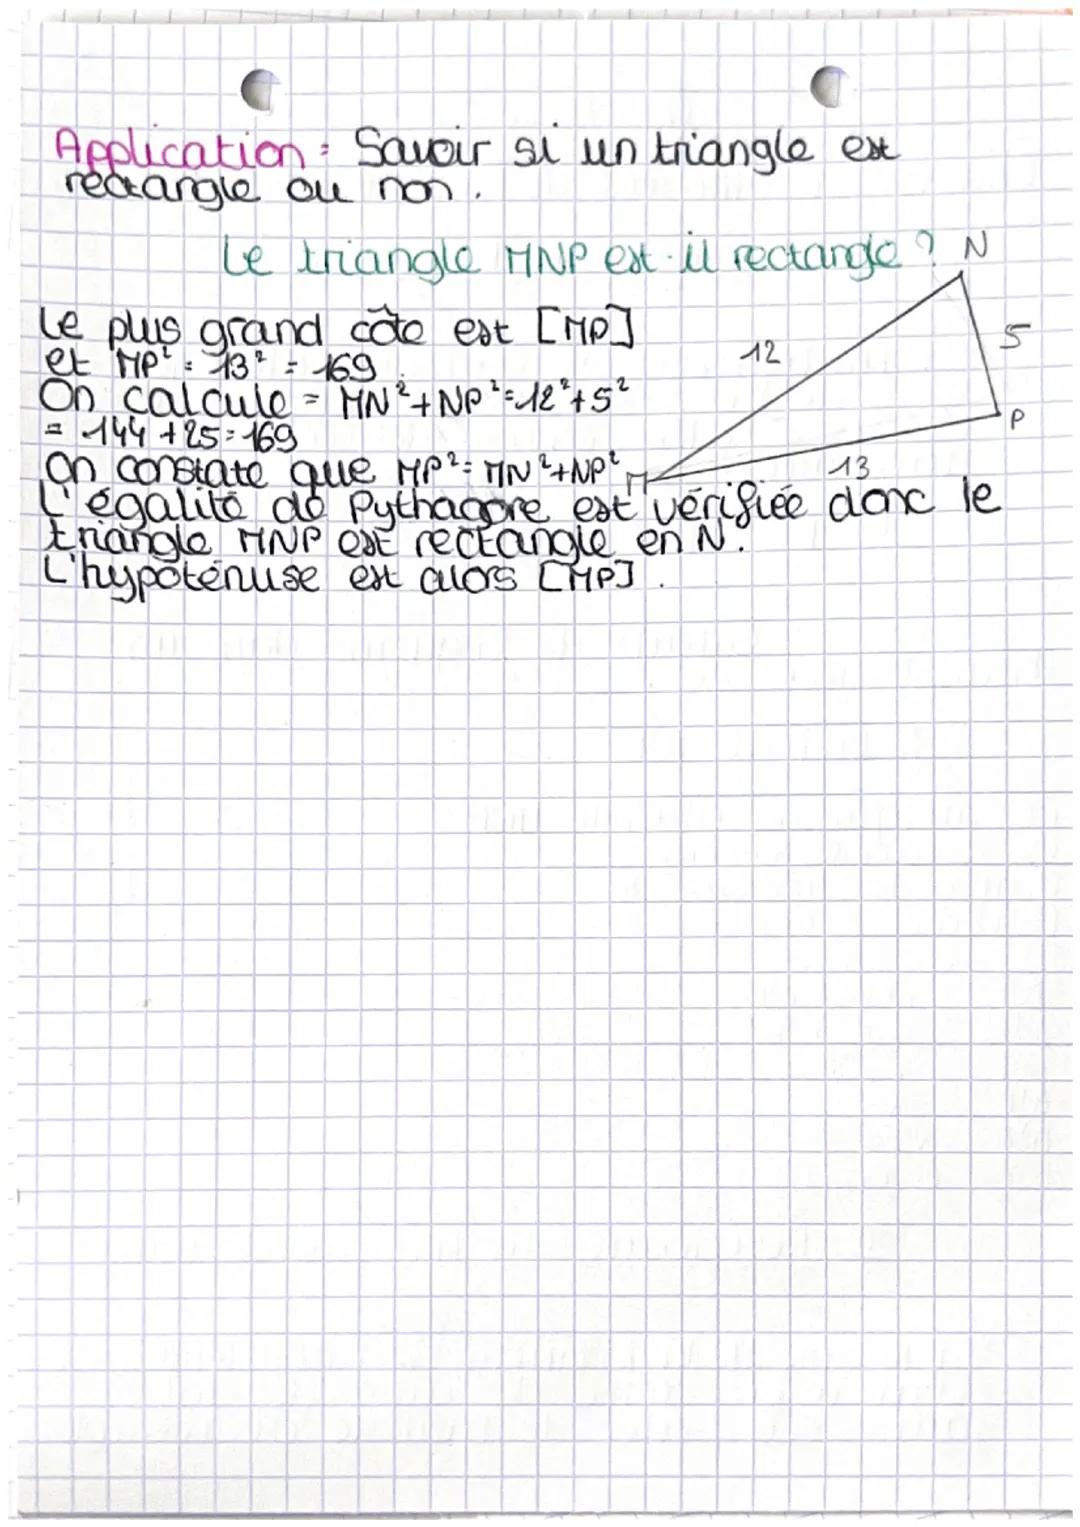 Application : Savoir si un triangle est
rectangle ou non.
Le triangle MNP est-il rectangle ?
N
Le plus grand côté est [MP]
5
12
et MP² = 13² = 169.
On calcule = MN²+NP²=12²+5²
= 144 +25=169
P
On constate que MP²= MN²+NP²
M
13
L'égalité de Pythagore est vérifiée donc le
triangle MNP est rectangle en N.
L'hypoténuse est alors [MP].